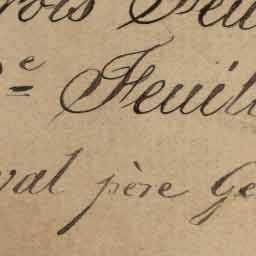 rois Feu
e Feuil
val père Ge